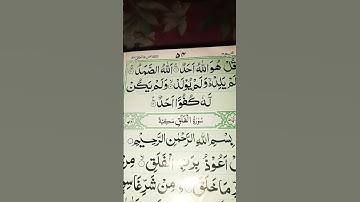 ۵۴
قُلْ هُوَ اللّٰهُ اَحَدٌ ۚ اَللّٰهُ الصَّمَدُ ۚ
لَمْ يَلِدْ ۙ وَلَمْ يُوْلَدْ ۙ وَلَمْ يَكُنْ
لَّهٗ كُفُوًا اَحَدٌ
سُوْرَةُ الْفَلَقِ مَكِّيَّةٌ
بِسْمِ اللّٰهِ الرَّحْمٰنِ الرَّحِيْمِ
اَعُوْذُ بِرَبِّ الْفَلَقِ ۙ مِنْ
مَا خَلَقَ ۙ وَمِنْ شَرِّ غَاسِقٍ